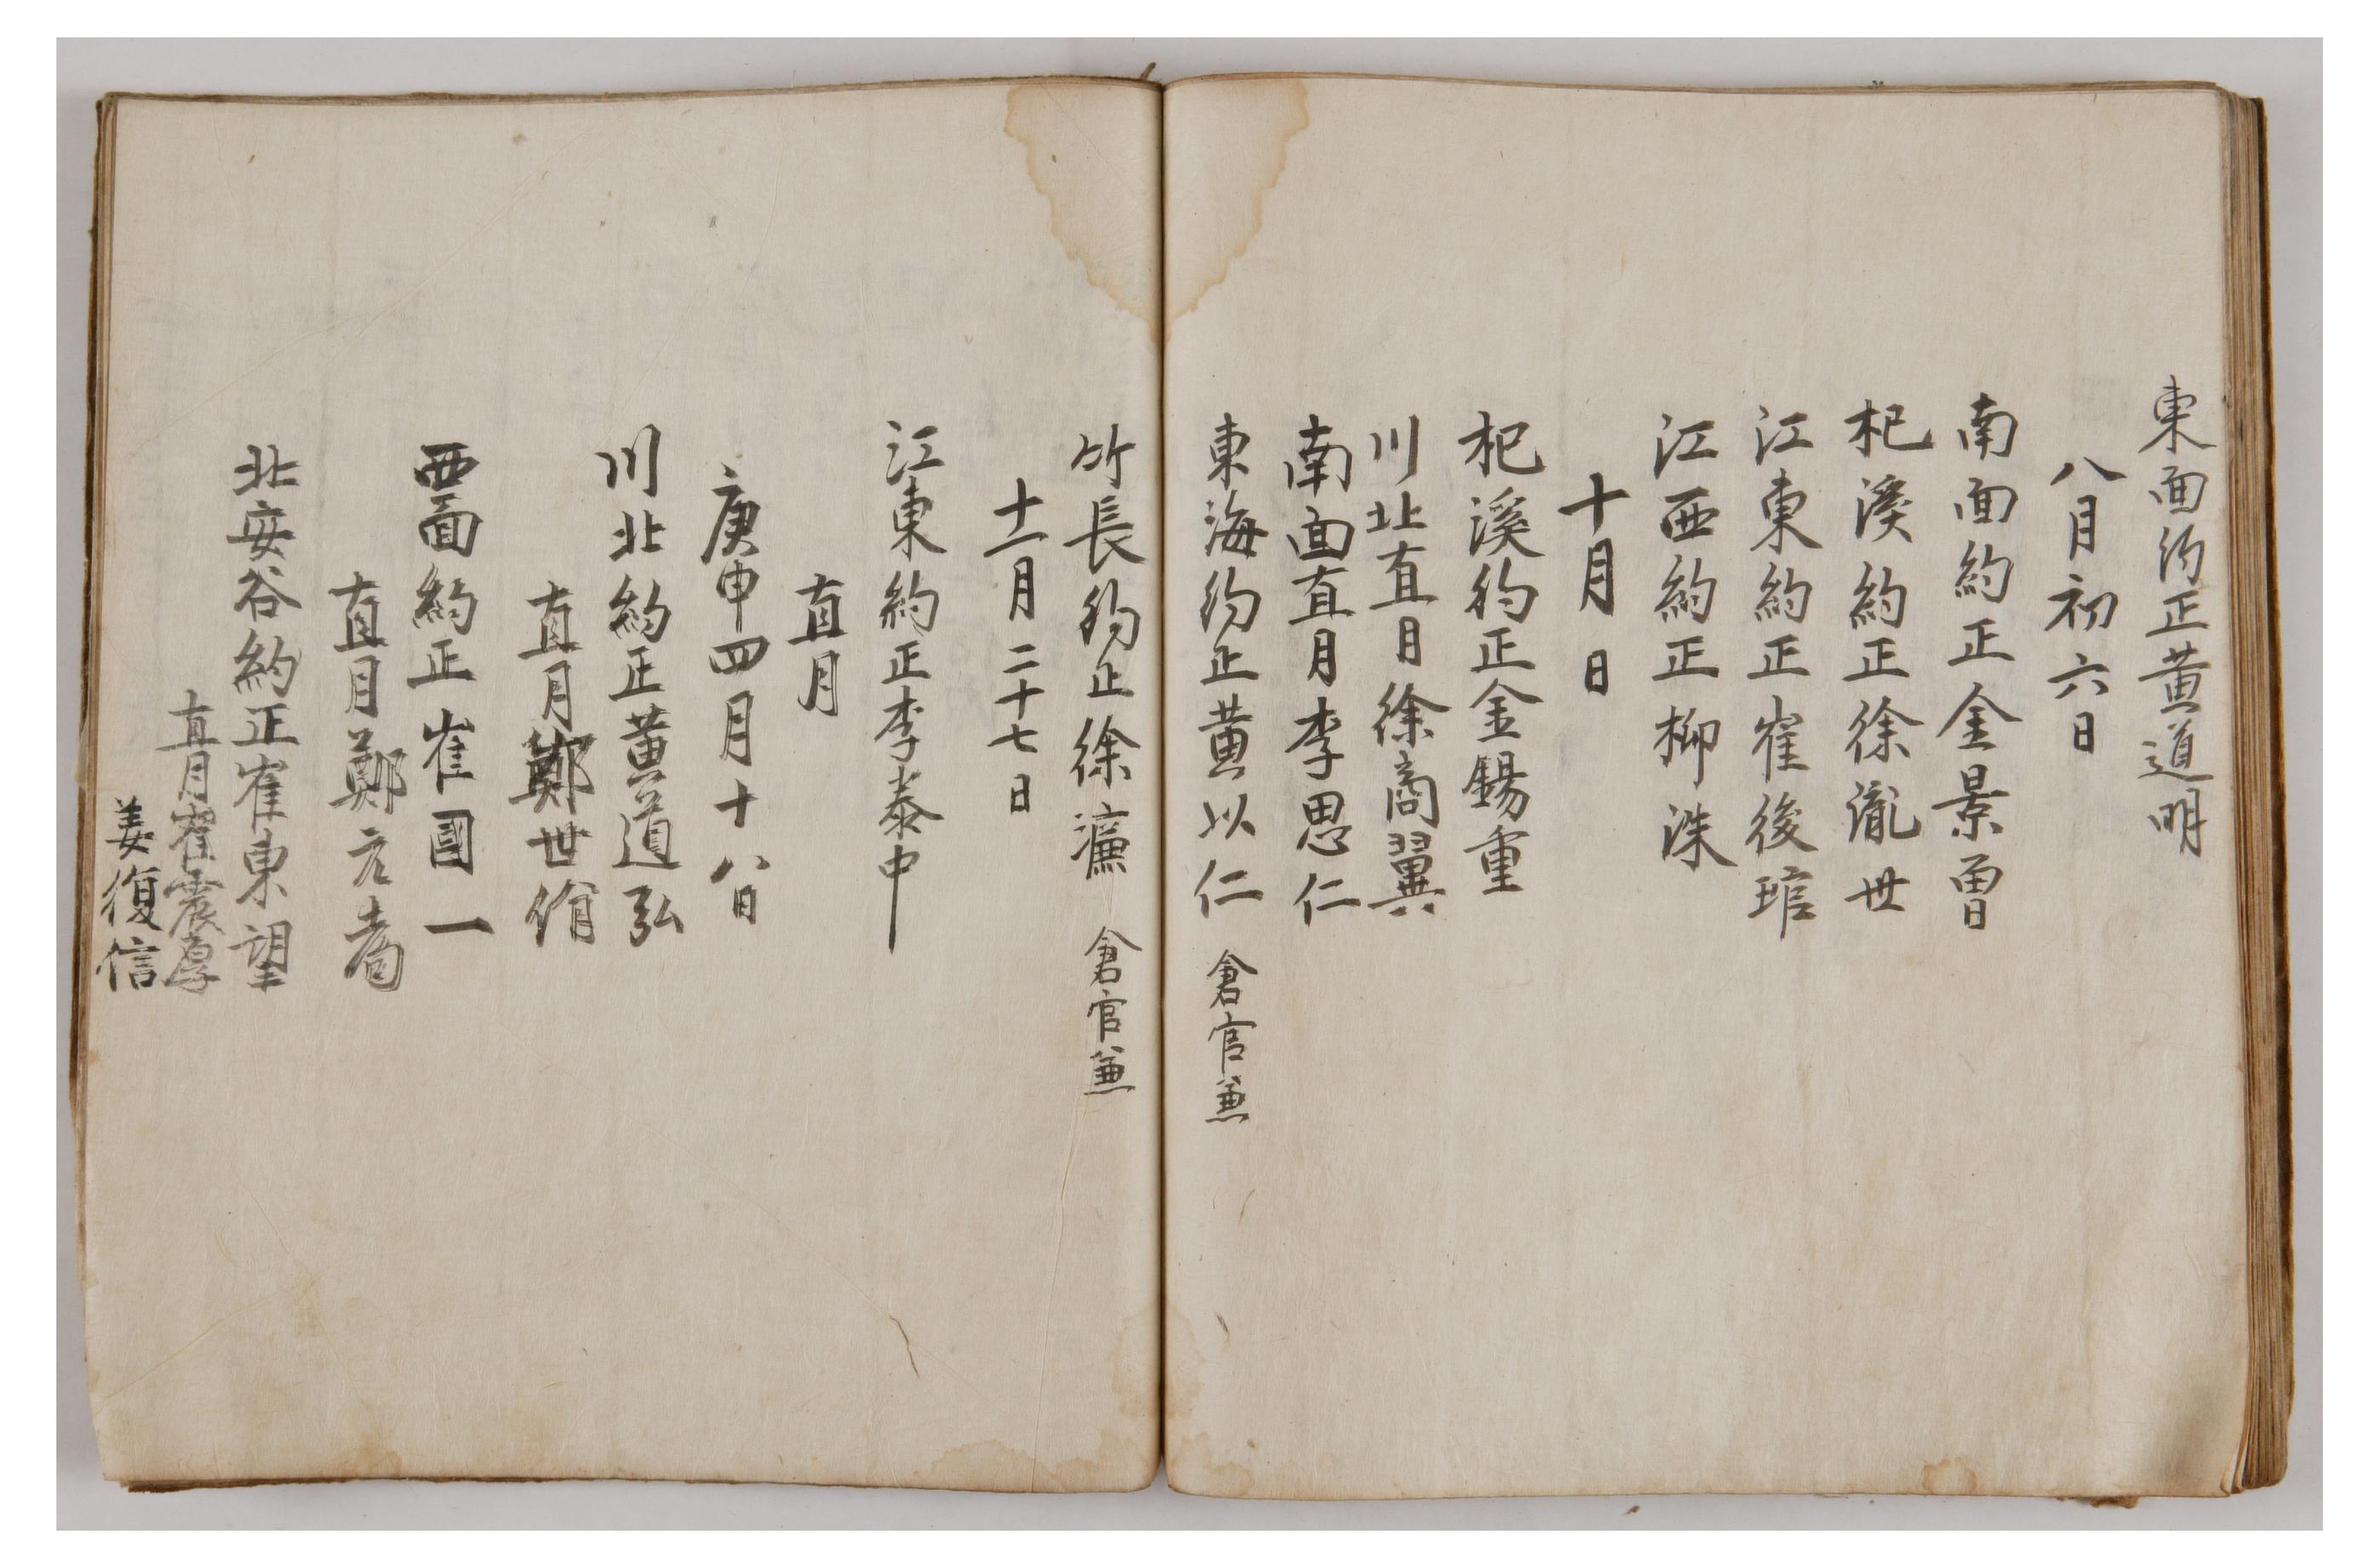 東面約正黄道明
八月初六日
南面約正金景曽
杞溪約正徐胤世
江東約正崔後琯
江西約正柳洙
十月 日
杞溪約正金錫重
川北直月徐商翼
南面直月李思仁
東海約正黄以仁 倉官兼
竹長約正徐濂 倉官兼
十一月二十七日
江東約正李泰中
直月
庚申四月十八日
川北約正黄道弘
直月鄭世
西面約正崔國一
直月鄭元
北安谷約正崔東望
直月崔震厚
姜復信